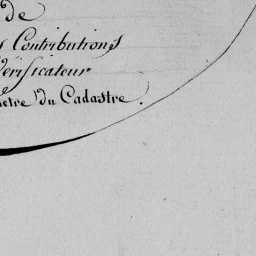 de
s Contributions
Vérificateur
metre du Cadastre.